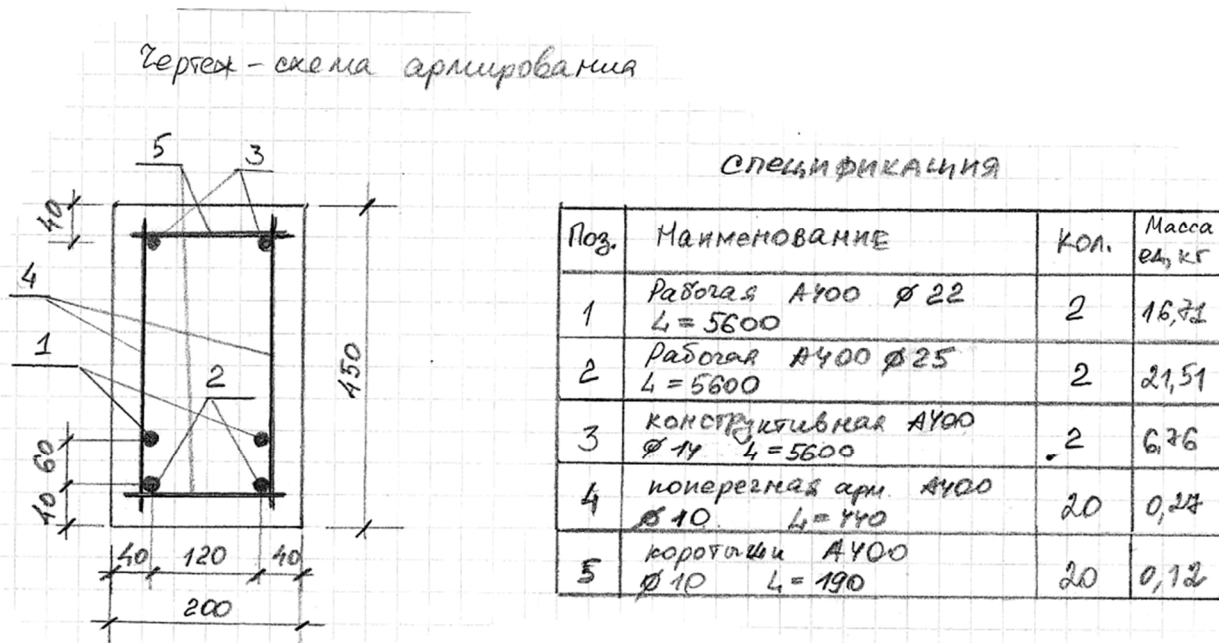 Чертеж - схема армирования
5 3
40
4
1
2
450
60
40
40 120 40
200
спецификация
Поз. Наименование Кол. Масса ед, кг
1 Рабочая А400 ⌀ 22 L = 5600 2 16,71
2 Рабочая А400 ⌀ 25 L = 5600 2 21,51
3 конструктивная А400 ⌀ 14 L = 5600 2 6,76
4 поперечная арм. А400 ⌀ 10 L = 440 20 0,27
5 коротыши А400 ⌀ 10 L = 190 20 0,12